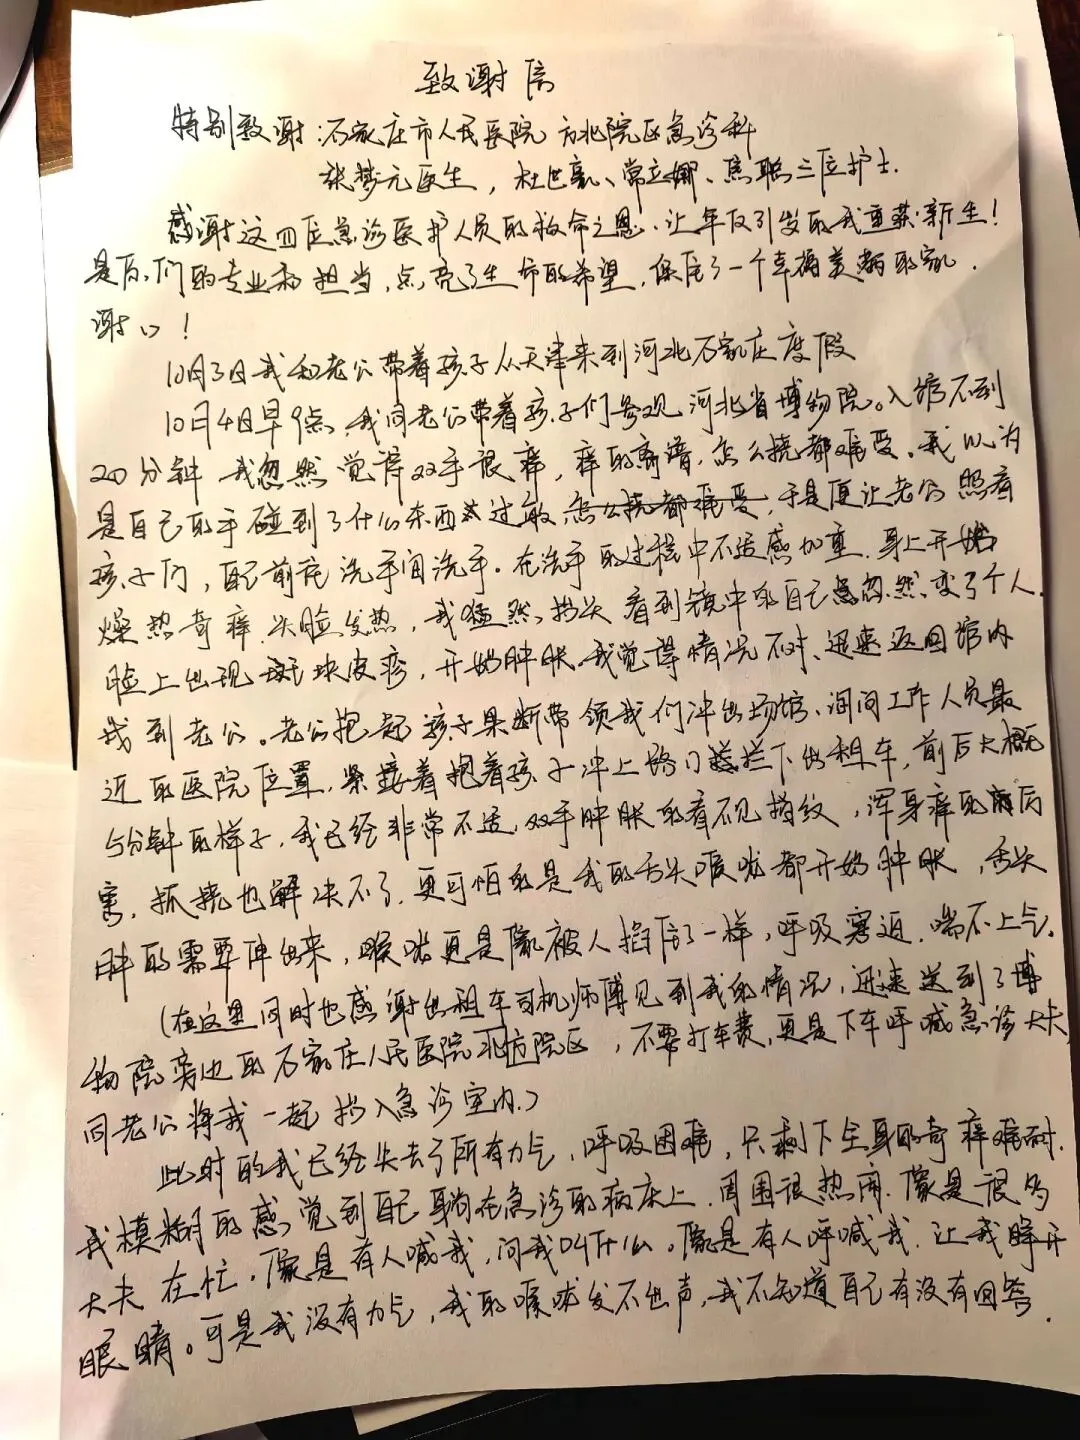 致谢信
特别致谢:石家庄市人民医院方北院区急诊科
张梦元医生,杜世豪、常立娜、焦聪三位护士.
感谢这四位急诊医护人员的救命之恩.让年仅引发的我重获新生!
是you们的专业和担当,点亮了生命的希望,保住了一个幸福美满的家.
谢谢!
10月3日我和老公带着孩子从天津来到河北石家庄度假
10月4日早9点,我同老公带着孩子们参观河北省博物院。入馆不到
20分钟 我忽然觉得双手很痒,痒的离谱,怎么挠都难受。我以为
是自己的手碰到了什么东西过敏,怎么挠都难受,于是便让老公照看
孩子们,自己前往洗手间洗手.在洗手的过程中不适感加重.身上开始
燥热奇痒.头脸发热,我猛然抬头看到镜中的自己忽然变了个人.
脸上出现斑块皮疹,开始肿胀.我觉得情况不对、迅速返回馆内
找到老公。老公抱起孩子果断带领我们冲出场馆、询问工作人员最
近的医院位置,紧接着抱着孩子冲上路口拦下出租车,前后大概
5分钟的样子,我已经非常不适,双手肿胀的看不见指纹,浑身痒的厉
害,抓挠也解决不了.更可怕的是我的舌头喉咙都开始肿胀,舌头
肿的需要伸出来,喉咙更是像被人掐住了一样,呼吸窘迫.喘不上气.
(在这里同时也感谢出租车司机师傅见到我的情况,迅速送到了博
物院旁边的石家庄人民医院方北院区,不要打车费,更是下车呼喊急诊大夫
同老公将我一起抬入急诊室内.)
此时的我已经失去了所有力气,呼吸困难,只剩下全身的奇痒难耐.
我模糊的感觉到自己躺在急诊的病床上.周围很热闹.像是很多
大夫在忙.像是有人喊我,问我叫什么.像是有人呼喊我.让我睁开
眼睛。可是我没有力气,我的喉咙发不出声,我不知道自己有没有回答.